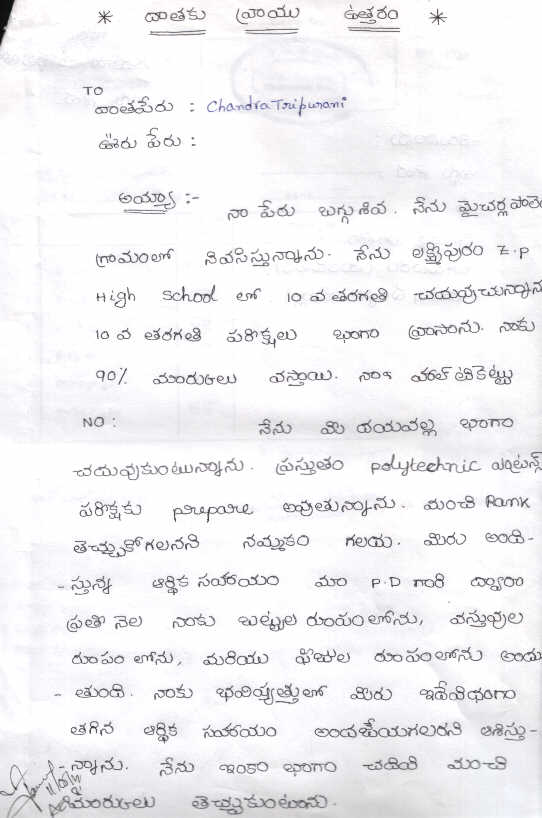 * దాతకు వ్రాయు ఉత్తరం *
TO
దాతపేరు : Chandra Tripurani
ఊరు పేరు :
అయ్యా :-
నా పేరు బగ్గు శివ. నేను మైచర్ల పాలెం
గ్రామంలో నివసిస్తున్నాను. నేను లక్ష్మిపురం Z.P
High school లో 10 వ తరగతి చదువుచున్నాను
10 వ తరగతి పరీక్షలు భాగా వ్రాసాను. నాకు
90% మార్కులు వస్తాయి. నా హాల్ టికెట్టు
NO : నేను మీ దయవల్ల భాగా
చదువుకుంటున్నాను. ప్రస్తుతం polytechnic ఎంట్రన్స్
పరీక్షకు prepare అవుతున్నాను. మంచి Rank
తెచ్చుకోగలనని నమ్మకం గలదు. మీరు అంది-
-స్తున్న ఆర్థిక సహాయం మా P.D గారి ద్వారా
ప్రతి నెల నాకు బట్టల రూపంలోను, వస్తువుల
రూపం లోను, మరియు ఫీజుల రూపంలోను అందు
- తుంది. నాకు భవిష్యత్తులో మీరు ఇదేవిధంగా
తగిన ఆర్థిక సహాయం అందచేయగలరని ఆశిస్తు-
-న్నాను. నేను ఇంకా భాగా చదివి మంచి
మార్కులు తెచ్చుకుంటాను.